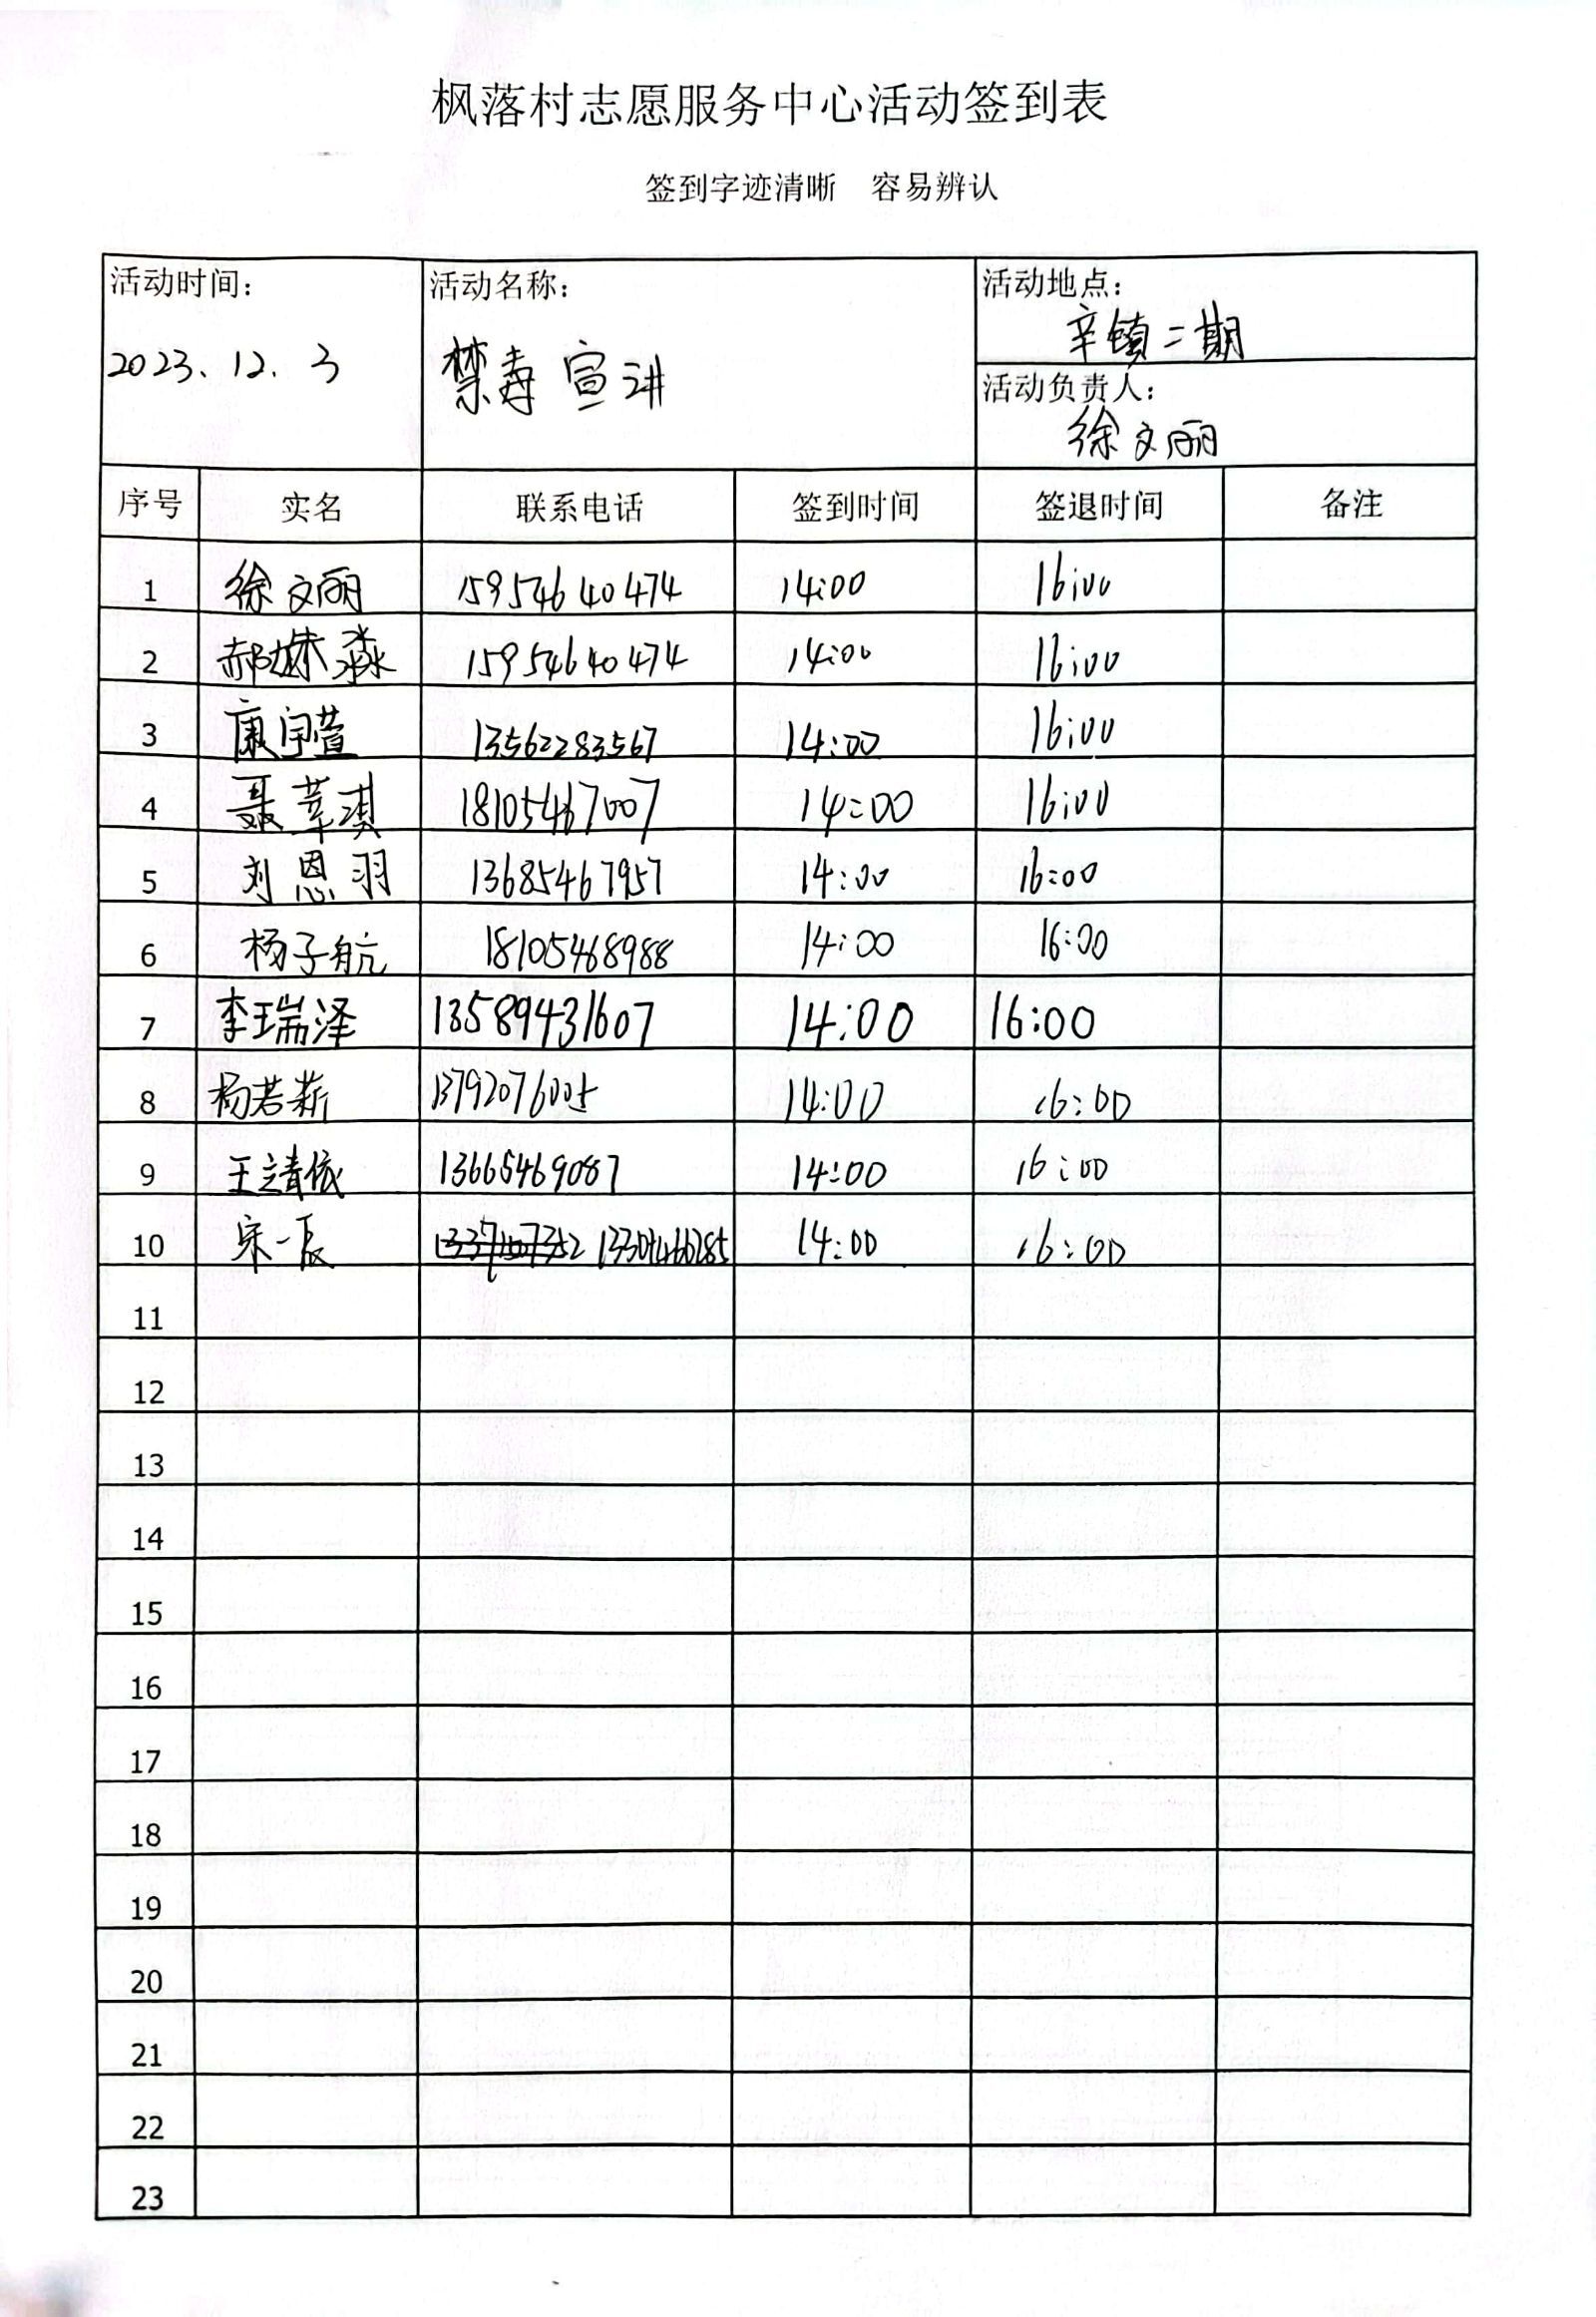 枫落村志愿服务中心活动签到表
签到字迹清晰 容易辨认
活动时间: 活动名称: 活动地点:
辛镇二期
2023、12、3 禁毒宣讲
活动负责人:
徐文丽
序号 实名 联系电话 签到时间 签退时间 备注
1 徐文丽 15954640474 14:00 16:00
2 郝姝淼 15954640474 14:00 16:00
3 康宇萱 13562283567 14:00 16:00
4 聂莘淇 18105467007 14:00 16:00
5 刘恩羽 13685467957 14:00 16:00
6 杨子航 18105468988 14:00 16:00
7 李瑞泽 13589431607 14:00 16:00
8 杨若薪 13792076005 14:00 16:00
9 王靖依 13665469087 14:00 16:00
10 宋一辰 14:00 16:00
11
12
13
14
15
16
17
18
19
20
21
22
23